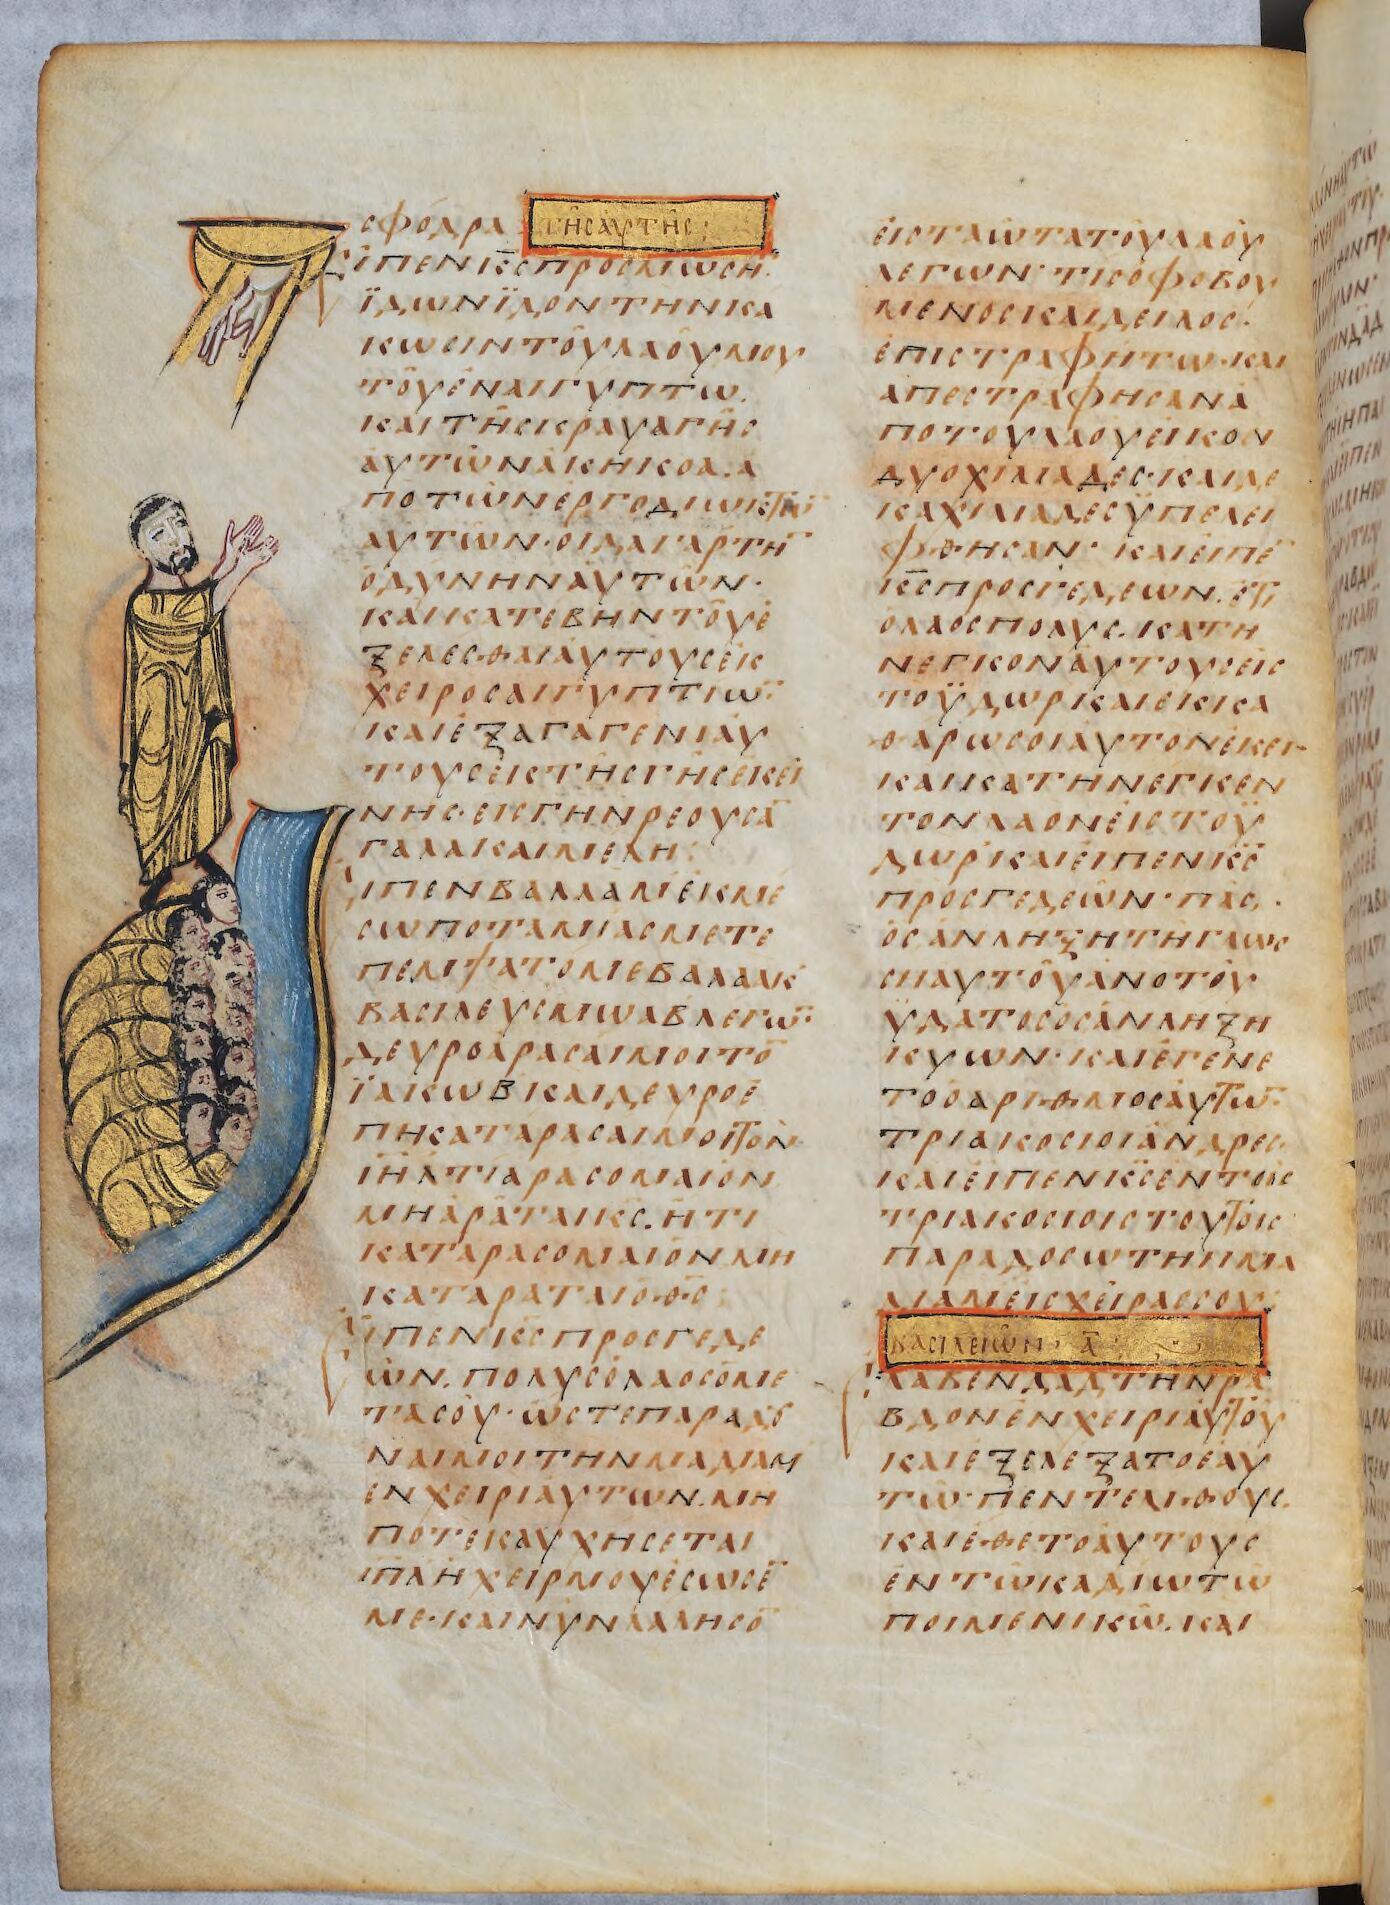 σφόδρα
τῆς αὐτῆς:
εἶπεν κ̅ς̅ προς μωσῆ·
ϊδὼν ϊδον την κα
κωσιν τοῦ λαοῦ μου
τοῦ ἐν αιγυπτω.
και τῆς κραυγῆς
ἀυτῶν ἀκήκοα. ἀ
πο τῶν ἐργοδιωκτῶ̅
αυτῶν· οιδα γαρ τη̅
ὀδυνην ἀυτῶν·
και κατεβην τοῦ ἐ
ξελεσθαι αυτους ἐκ
χειρος αιγυπτιω̅·
και ἐξαγαγεν ἀυ
τους ἐκ τῆς γῆς ἐκεί
νης· εις γην ρεουσα̅
γαλα και μελη:
ειπεν βαλλαὰμ ἐκ με
σωποταμίας μετε
πεμψατο με βαλαὰκ
βασιλευς μωαβ λεγω̅·
δευρο ἀρασαι μοι το̅
ϊακωβ και δευρο ἐ
πηκαταρασαι μοι τὸν
ι̅η̅λ τί αρασομαι ὃν
μη ἀρᾶται κ̅ς̅. ἢ τι
καταρασομαι ὃν μη
καταραται ὁ θ̅ς̅:
ειπεν κ̅ς̅ προς γεδε
ών. πολυς ὁ λαος ὁ με
τα σοῦ· ὥστε παραδȣ
ναι μοι την μαδιαμ
ἐν χειρι ἀυτων. μη
ποτε καυχησεται
ι̅η̅λ ἡ χειρ μου ἐσωσέ̅
με· και νῦν λαλησο̅
ἐις τα ὦτα τοῦ λαοῦ
λεγων· τις ὁ φοβου
μενος και δειλος·
ἐπιστραφήτω· και
απεστράφησαν ἀ
πο του λαοῦ εικον
δυο χιλιαδες· και δε
κα χιλιαδες ϋπελει
φθησαν· και ειπε̅
κ̅ς̅ προς γεδεων. ἔτι
ὁ λαος πολυς. κατη
νεγκον ἀυτους ἐις
το ϋδωρ και ἐκκα
θαρω σοι ἀυτον ἐκει
και κατηνεγκεν
τον λαον ἐις το ϋ
δωρ· και ειπεν κ̅ς̅
προς γεδεῶν· πᾶς,
ὃς ἀν λήξη τῆ γλωσ
ση αυτοῦ ἀπο τοῦ
ϋδατος ὡς ἀν λήξη
κυων· και ἐγενε
το ὁ αριθμος ἀυτω̅·
τριακοσιοι ἀνδρες·
και εἶπεν κ̅ς̅ ἐν τοῖς
τριακοσιοις τουτοις
παραδοσω την μα
διαμ ἐις χεῖρας σου:
βασιλειῶν α̅
ελαβεν δαδ την ρα
βδον ἐν χειρι ἀυτοῦ
και ἐξελεξατο ἑαυ
τῶ· πεντε λιθους.
και ἐθετο ἀυτους
ἐν τῶ καδίω τῶ
ποιμενικῶ. και